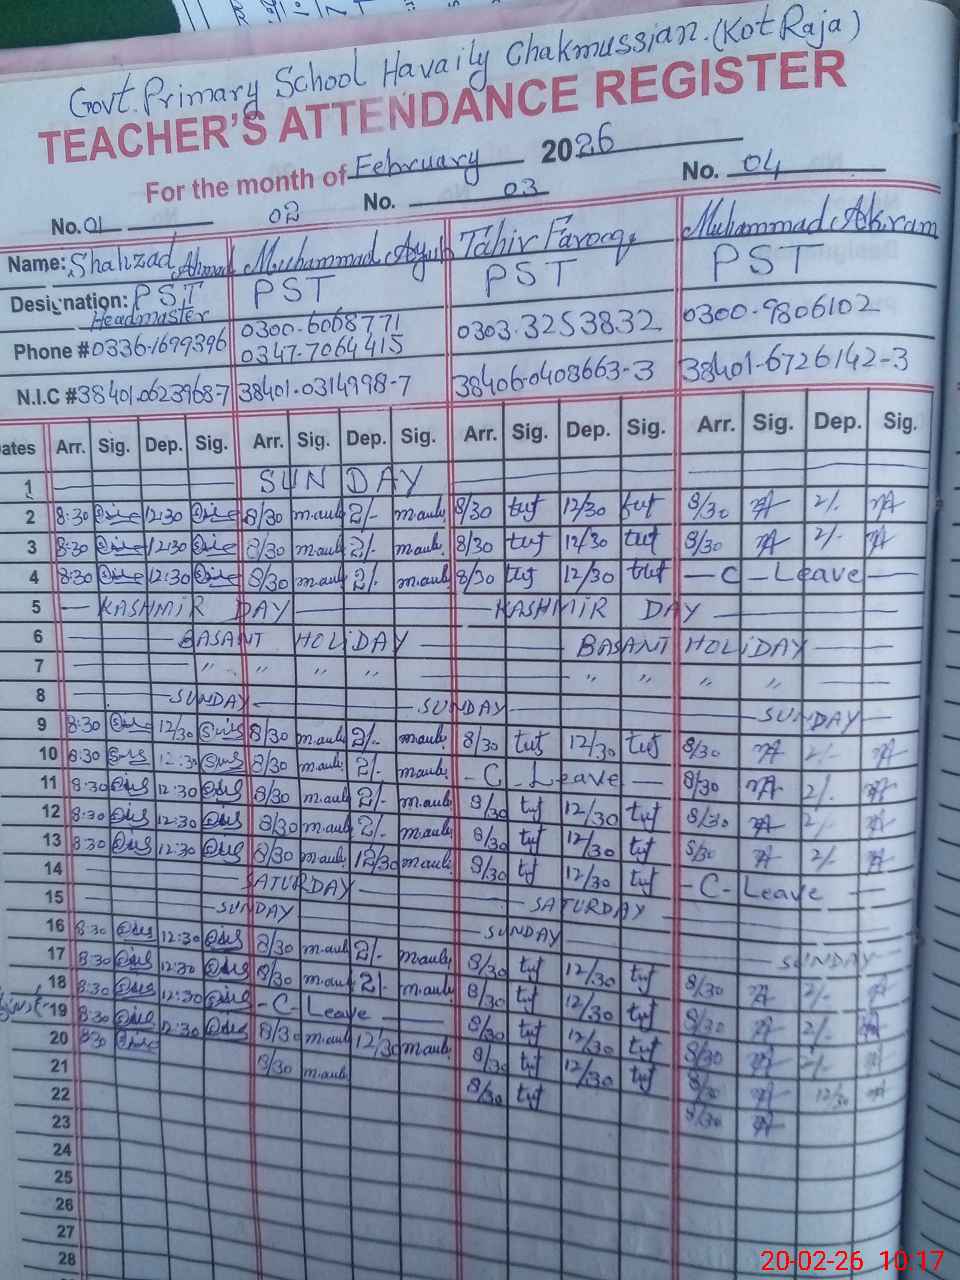 Govt. Primary School Havaily Chakmussian. (Kot Raja)
TEACHER'S ATTENDANCE REGISTER
For the month of February 2026
No. 01 02 No. 03 No. 04
Name: Shahzad Ahmad Muhammad Ayub Tahir Farooq Muhammad Akram
Designation: PST Headmaster PST PST PST
Phone # 0336-1699396 0300-6068771 0347-7064415 0303-3253832 0300-9806102
N.I.C # 38401-0623968-7 38401-0314998-7 38406-0408663-3 38401-6726142-3
ates Arr. Sig. Dep. Sig. Arr. Sig. Dep. Sig. Arr. Sig. Dep. Sig. Arr. Sig. Dep. Sig.
1 SUN DAY
2 8:30 12:30 8/30 m.aub 2/- m.aub 8/30 tuf 12/30 tuf 8/30 2/-
3 8:30 12:30 8/30 m.aub 2/- m.aub 8/30 tuf 12/30 tuf 8/30 2/-
4 8:30 12:30 8/30 m.aub 2/- m.aub 8/30 tuf 12/30 tuf C-Leave
5 KASHMIR DAY KASHMIR DAY
6 BASANT HOLIDAY BASANT HOLIDAY
7 " " " " " " " "
8 SUNDAY SUNDAY SUNDAY
9 8:30 12/30 8/30 m.aub 2/- m.aub 8/30 tuf 12/30 tuf 8/30 2/-
10 8:30 12:30 8/30 m.aub 2/- m.aub - C - Leave - 8/30 2/-
11 8:30 12:30 8/30 m.aub 2/- m.aub 8/30 tuf 12/30 tuf 8/30 2/-
12 8:30 12:30 8/30 m.aub 2/- m.aub 8/30 tuf 12/30 tuf 8/30 2/-
13 8:30 12:30 8/30 m.aub 12/30 m.aub 8/30 tuf 12/30 tuf - C-Leave
14 SATURDAY SATURDAY
15 SUNDAY SUNDAY SUNDAY
16 8:30 12:30 8/30 m.aub 2/- m.aub 8/30 tuf 12/30 tuf 8/30 2/-
17 8:30 12:30 8/30 m.aub 2/- m.aub 8/30 tuf 12/30 tuf 8/30 2/-
18 8:30 12:30 - C- Leave 8/30 tuf 12/30 tuf 8/30 2/-
19 8:30 12:30 8/30 m.aub 12/30 m.aub 8/30 tuf 12/30 tuf 8/30 12/30
20 8:30 8/30 m.aub 8/30 tuf 8/30
21
22
23
24
25
26
27
28
20-02-26 10:17